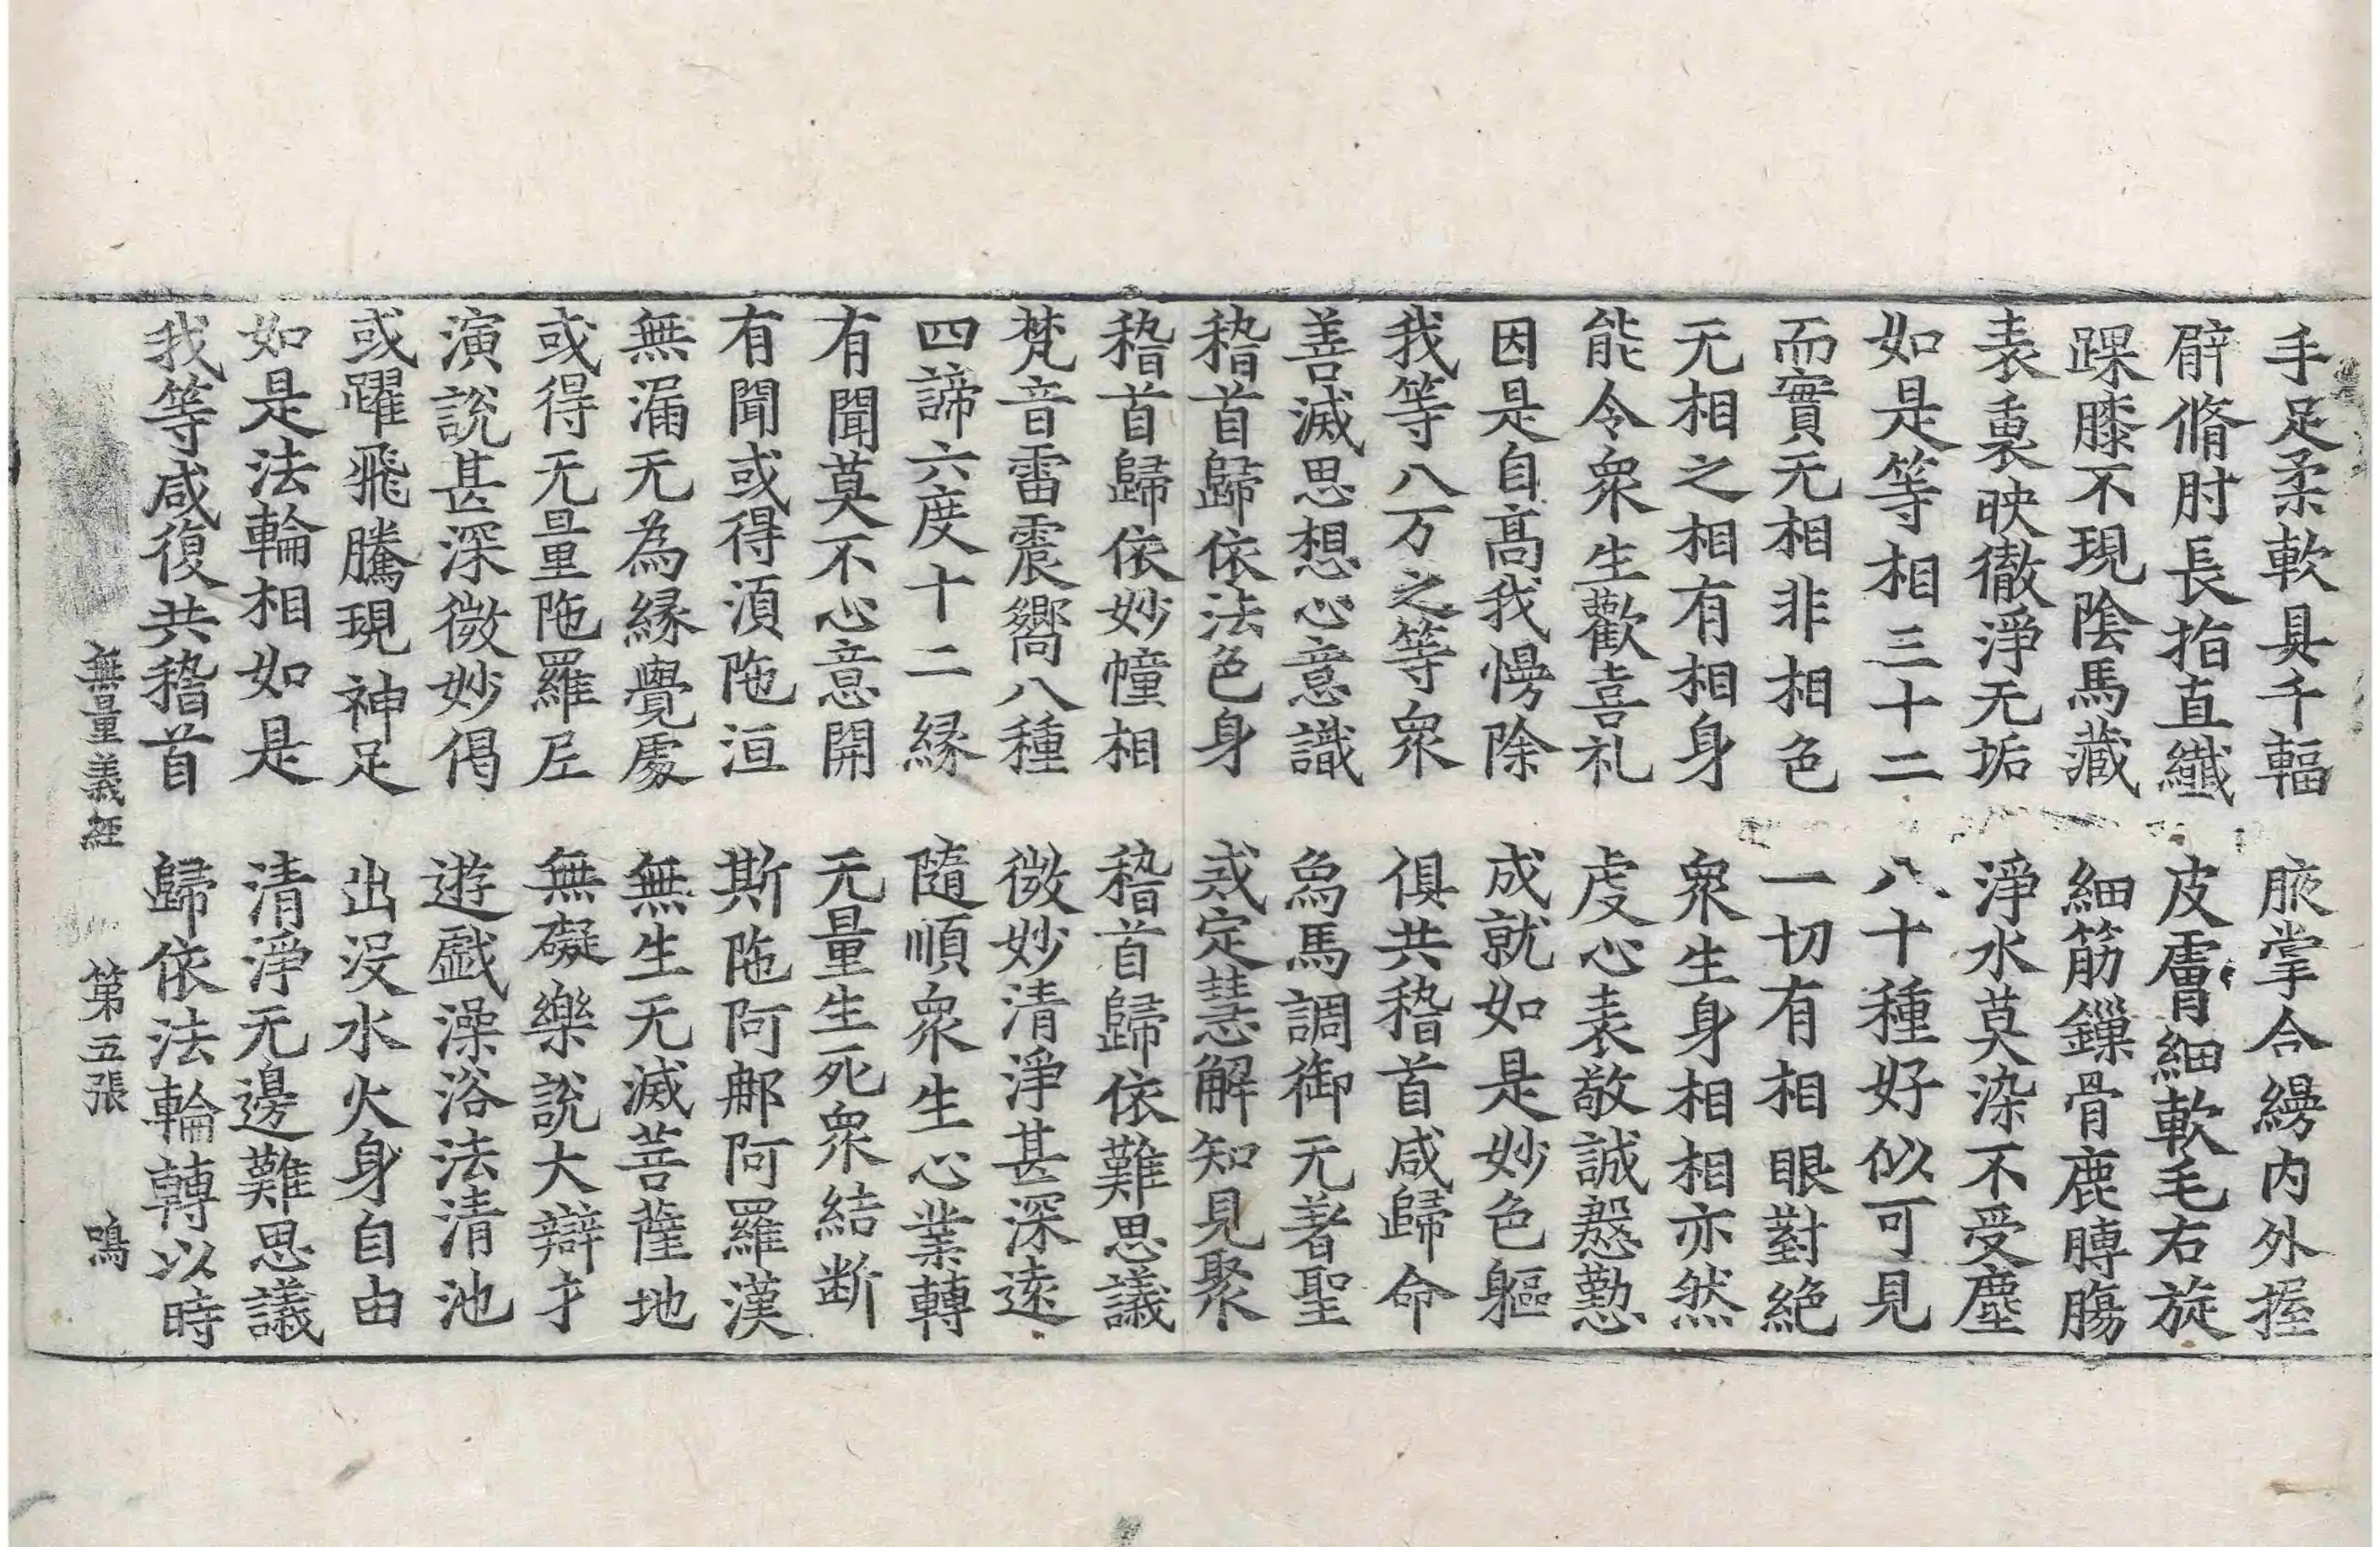 手足柔軟具千輻　腋掌合縵內外握
臂脩肘長指直纖　皮膚細軟毛右旋
踝膝不現陰馬藏　細筋鏁骨鹿膞膓
表裏映徹淨无垢　淨水莫染不受塵
如是等相三十二　八十種好似可見
而實无相非相色　一切有相眼對絶
无相之相有相身　衆生身相相亦然
能令衆生歡喜礼　虔心表敬誠慇懃
因是自高我慢除　成就如是妙色軀
我等八万之等衆　俱共稽首咸歸命
善滅思想心意識　象馬調御无著聖
稽首歸依法色身　戒定慧解知見聚
稽首歸依妙幢相　稽首歸依難思議
梵音雷震嚮八種　微妙清淨甚深遠
四諦六度十二緣　隨順衆生心業轉
有聞莫不心意開　无量生死衆結断
有聞或得湏陁洹　斯陁阿郍阿羅漢
無漏无為緣覺處　無生无滅菩薩地
或得无量陁羅尼　無礙樂說大辯才
演說甚深微妙偈　遊戲澡浴法清池
或躍飛騰現神足　出沒水火身自由
如是法輪相如是　清淨无邊難思議
我等咸復共稽首　歸依法輪轉以時
無量義經　第五張　鳴